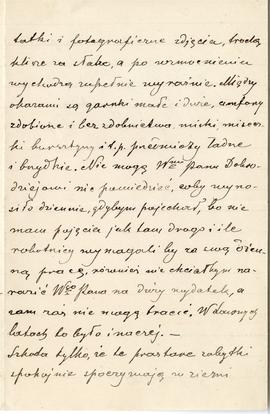 tatki i fotograficzne zdjęcia, trochę
które za słabe, a po wzmocnieniu
wychodzą zupełnie wyraźnie. Między
okazami są garnki małe i duże, amfory
zdobione i bez zdobnictwa, miski, misecz-
ki bursztyny i t.p. przedmioty ładne
i brzydkie. Nie mogę Wmu Panu Dobro-
dziejowi nie powiedzieć, coby wyno-
siło dziennie, gdybym pojechał, bo nie
mam pojęcia jak tam drogo i ile
robotnicy wymagaliby za swą dzien-
ną pracę, również nie chciałbym na-
razić Wgo Pana na duży wydatek, a
sam zaś nie mogę tracić. W dawnych
latach to było inaczej. —
Szkoda tylko, że te prastare zabytki
spokojnie spoczywają w ziemi